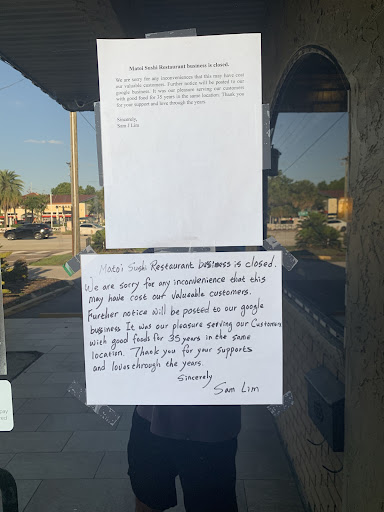 Matoi Sushi Restaurant business is closed.
We are sorry for any inconveniences that this may have cost
our valuable customers. Further notice will be posted to our
google business. It was our pleasure serving our customers
with good food for 35 years in the same location. Thank you
for your support and love through the years.
Sincerely,
Sam J Lim
Matoi Sushi Restaurant business is closed.
We are sorry for any inconvenience that this
may have cost our valueable customers.
Further notice will be posted to our google
business It was our pleasure serving our Customers
with good foods for 35 years in the same
location. Thank you for your supports
and loves through the years.
Sincerely
Sam Lim